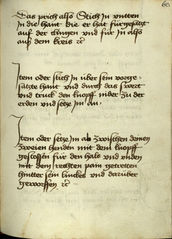 Das prich also Stich In vntten
in die hant die er hat fürgesatzt
auf der clingen vnd für In also
aus dem kreis ec
Item oder stich In vber sein vorge=
satzte hant vnd durch das swert
vnd truck den knopff nider zu der
erden vnd setz Im an
Item oder setz Im ab zwischen deinen
zweien henden mit dem knopff
gestossen für den hals vnd vnden
mit dem rechten pain getretten
hinter sein lincks vnd darüber
geworffen ec